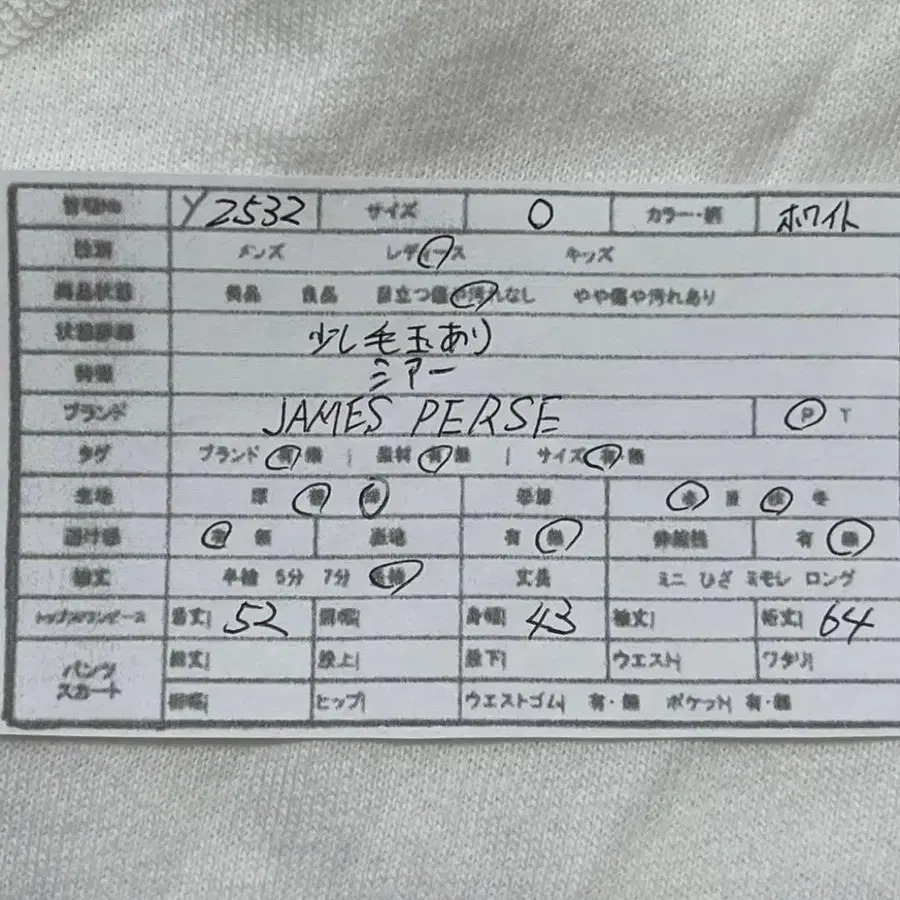 管理No Y2532 サイズ 0 カラー・柄 ホワイト
性別 メンズ レディース キッズ
商品状態 美品 良品 目立つ傷や汚れなし やや傷や汚れあり
状態詳細 少し毛玉あり
特徴 シアー
ブランド JAMES PERSE P T
タグ ブランド 有 無 | 素材 有 無 | サイズ 有 無
生地 厚 薄 季節 春 夏 秋 冬
透け感 有 無 裏地 有 無 伸縮性 有 無
袖丈 半袖 5分 7分 長袖 丈長 ミニ ひざ ミモレ ロング
トップス/ワンピース 着丈| 52 肩幅| 身幅| 43 袖丈| 裄丈| 64
パンツ スカート 総丈| 股上| 股下| ウエスト| ワタリ|
裾幅| ヒップ| ウエストゴム| 有・無 ポケット| 有・無